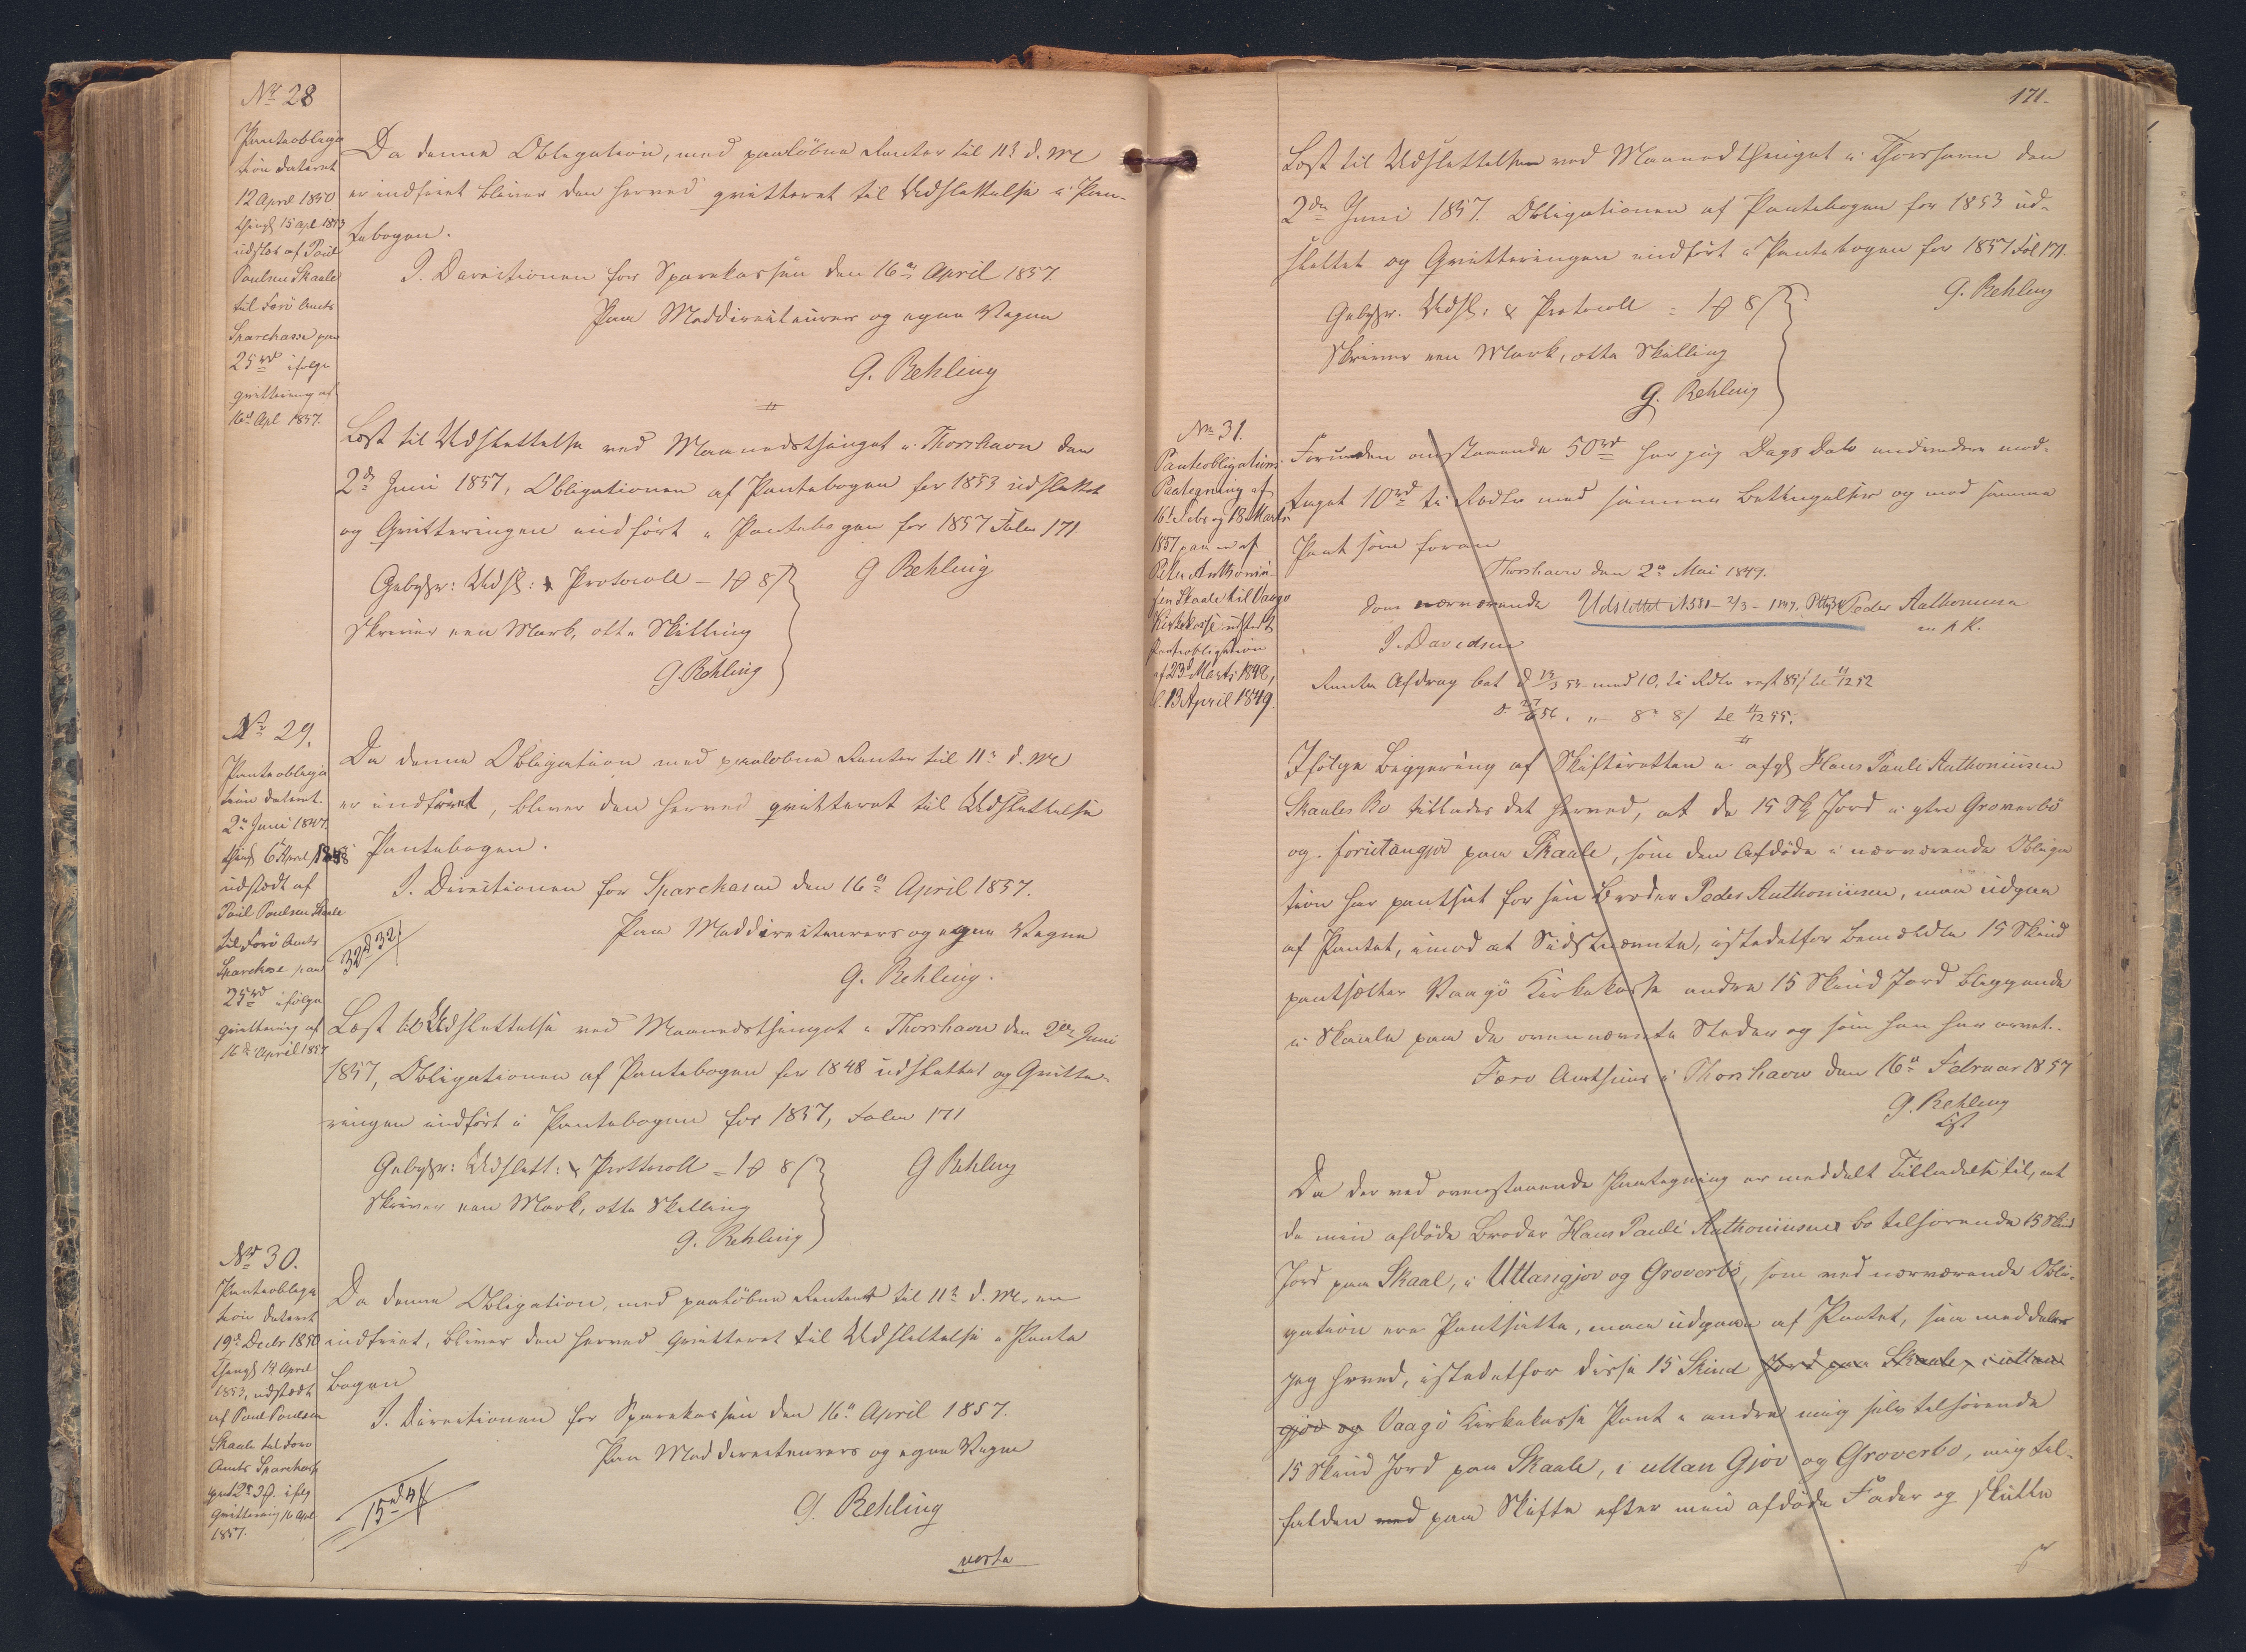 Nr 28
Panteobliga
tion dateret
12 April 1850
thingl 15 Apl 1853
udstæd af Poul
Poulsen Skaale
til Færö Amts
Sparekasse paa
25 rd ifølge
qvittering af
16de Apl 1857.
Da denne Obligation, med paaløbne Renter til 11te d. M.
er indfriet bliver den herved qvitteret til Udslettelse i Pan-
tebogen.
I Directionen for Sparekassen den 16de April 1857.
Paa Meddirecteurers og egne Vegne
G. Rehling
Læst til Udslettelse ved Maanedsthinget i Thorshavn den
2de Juni 1857, Obligationen af Pantebogen for 1853 udslettet
og Qvitteringen indført i Pantebogen for 1857 Folio 171.
G Rehling
Gebyhr: Udsl: & Protocoll - 1 # 8 s
Skriver een Mark, otte Skilling
G. Rehling
Nr 29.
Panteobliga
tion dateret
2de Juni 1847.
thingl 6 April 1848
udstædt af
Poul Poulsen Skaale
til Færö Amts
Sparekasse paa
25 rd ifølge
qvittering af
16de April 1857
Da denne Obligation med paaløbne Renter til 11te d. M.
er indfriet, bliver den herved qvitteret til Udslettelse
i Pantebogen.
I. Directionen for Sparekassen den 16de April 1857.
Paa Meddirecteurers og egne Vegne
32 # 32 s
G. Rehling.
Læst til Udslettelse ved Maanedsthinget i Thorshavn den 2den Juni
1857, Obligationen af Pantebogen for 1848 udslettet og Qvitte-
ringen indført i Pantebogen for 1857, Folio 171
G Rehling
Gebyhr: Udslett: & Prottocoll - 1 # 8 s
Skriver een Mark, otte Skilling
G. Rehling
Nr 30.
Panteobliga
tion dateret
19de Decbr 1850
Thingl 14 April
1853, udstædt
af Poul Poulsen
Skaale til Færö
Amts Sparekasse
ifølg
Qvittering 16 Apl
1857.
Da denne Obligation, med paaløbne Renter til 11te d. M. er
indfriet, bliver den herved qvitteret til Udslettelse i Pante
bogen
I. Directionen for Sparekassen den 16de April 1857.
Paa Meddirecteurers og egne Vegne
G. Rehling
verte
171.
Læst til Udslettelse ved Maanedsthinget i Thorshavn den
2den Juni 1857. Obligationen af Pantebogen for 1853 ud-
slettet og Qvitteringen indført i Pantebogen for 1857 Fol 171.
G. Rehling
Gebyhr. Udsl: & Protocoll = 1 # 8 s
Skriver een Mark, otte Skilling
G. Rehling
No 31.
Panteobligations
Paategning af
16de Febr og 18 Marts
1857 paa en af
Peter Anthonius-
sen Skaale til Vaagö
Kirkekasse udstædt
Panteobligation
af 23 Marts 1848,
13 April 1849.
Foruden anstaaende 50 rd har jeg Dags Dato endvidere mod-
taget 10 rd ti Rdlr mod samme Betingelser og mod samme
Pant som foran
Thorshavn den 2de Mai 1849.
Som nærværende Udslettet Peder Anthonius
m. p. P.
J. Davidsen
Ifølge Begjering af Skifteretten i afg Hans Pauli Anthoniusen
Skaales Bo tillades det herved, at de 15 Sk Jord i ytre Groverbö
og paa Skaale, som den Afdøde i nærværende Obliga
tion har pantsat for sin Broder Peder Anthoniusen, maa udgaa
af Pantet, imod at Sidstnævnte, istedetfor bemeldte 15 Skind
pantsætter Vaagö Kirkekasse andre 15 Skind Jord beliggende
i Skaale paa de ovennævnte Steder og som han har arvet.
Færö Amthuus i Thorshavn den 16de Februar 1857
G. Rehling
Da der ved ovenstaaende Paategning er meddelt Tilladelse til, at
de min afdøde Broder Hans Pauli Anthoniusens bo tilhørende 15 Skind
Jord paa Skaal, i Uttangjov og Groverbö, som ved nærværende Obli-
gation ere Pantsatte, maa udgaae af Pantet, saa meddeler
jeg herved, istedetfor disse 15 Skind Jord paa Skaale, i uttan
gjov og Vaagö Kirkekasse Pant i andre mig selv tilhørende
15 Skind Jord paa Skaale, i uttan Gjov og Groverbo, mig til-
falden med paa Skifte efter min afdøde Fader og skulle